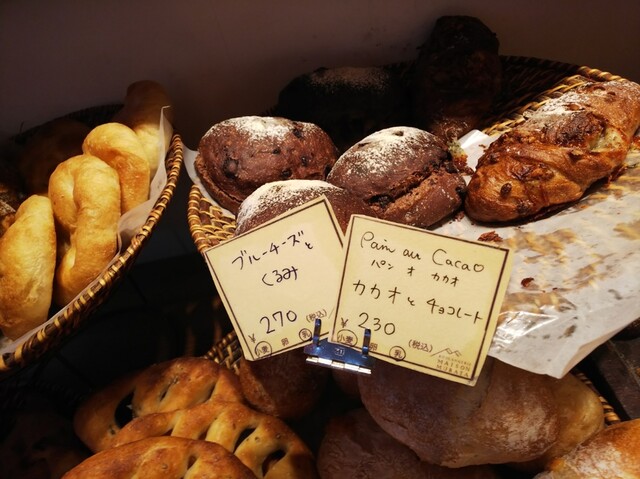 ブルーチーズと
くるみ
¥270 (税込)
小麦 卵 乳
Pain au Cacao
パン オ カカオ
カカオと チョコレート
¥230
(税込)
小麦 卵 乳
MAISON MURATA